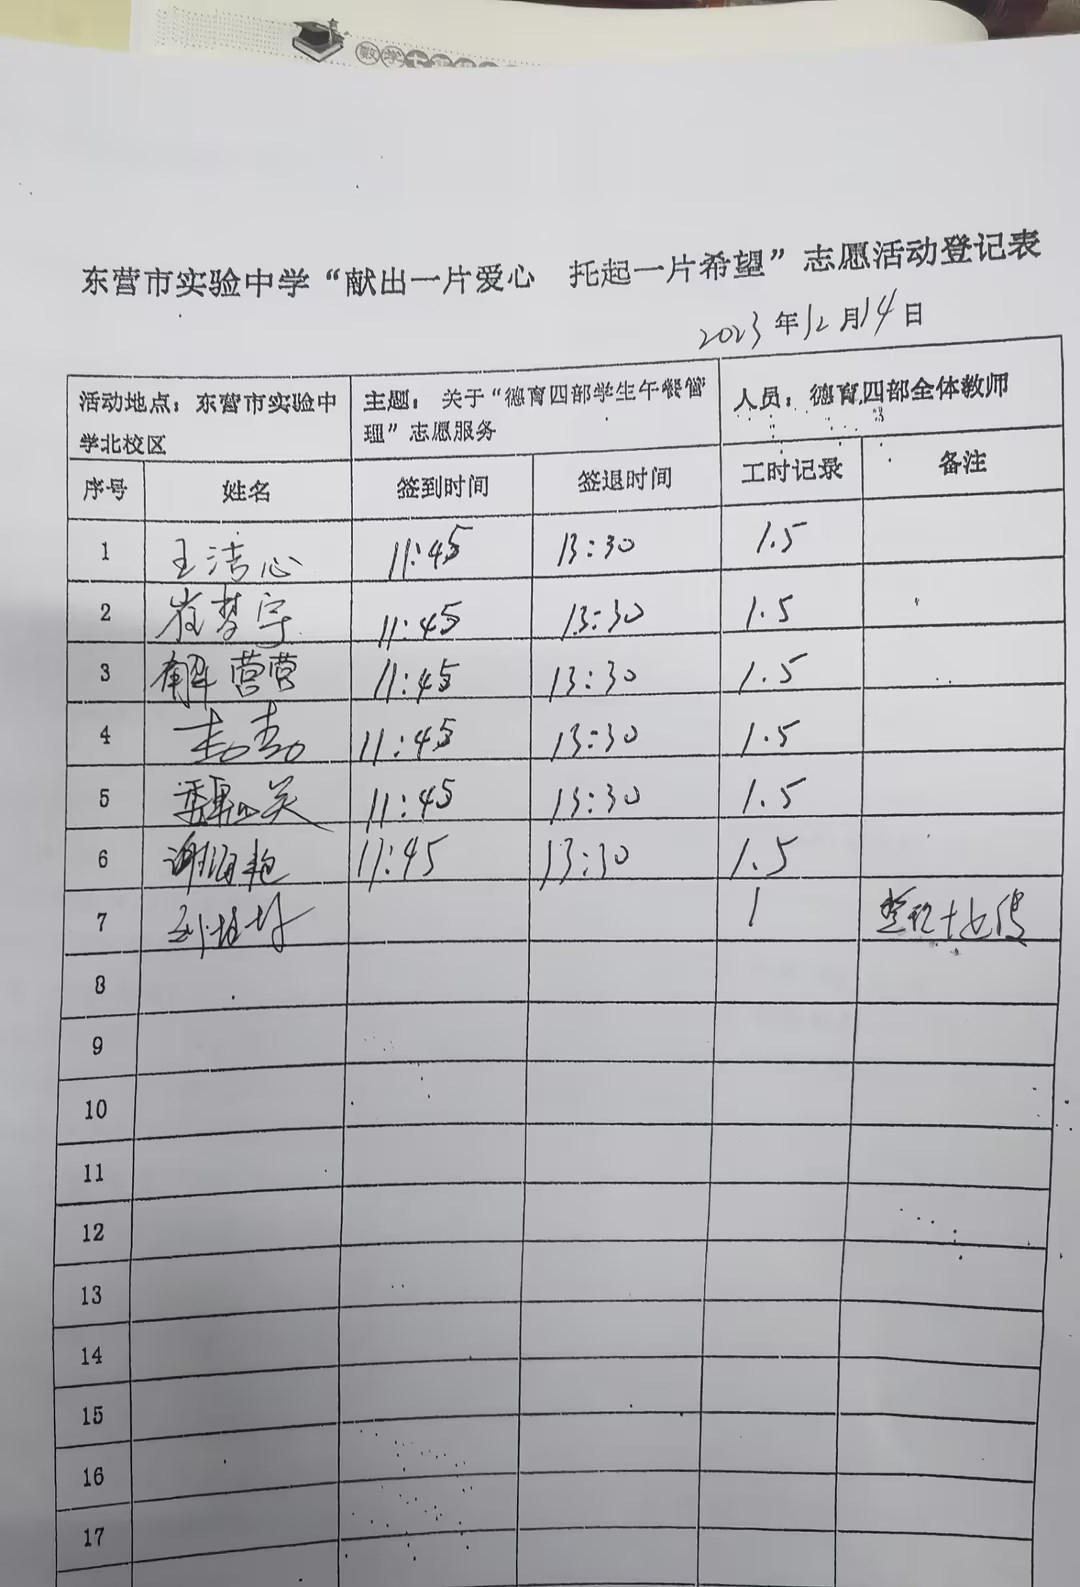 数学七
东营市实验中学“献出一片爱心 托起一片希望”志愿活动登记表
2023年12月14日
活动地点：东营市实验中学北校区 主题：关于“德育四部学生午餐管理”志愿服务 人员：德育四部全体教师
序号 姓名 签到时间 签退时间 工时记录 备注
1 王洁心 11:45 13:30 1.5
2 崔梦宇 11:45 13:30 1.5
3 解营营 11:45 13:30 1.5
4 11:45 13:30 1.5
5 11:45 13:30 1.5
6 谢海艳 11:45 13:30 1.5
7 1
8
9
10
11
12
13
14
15
16
17